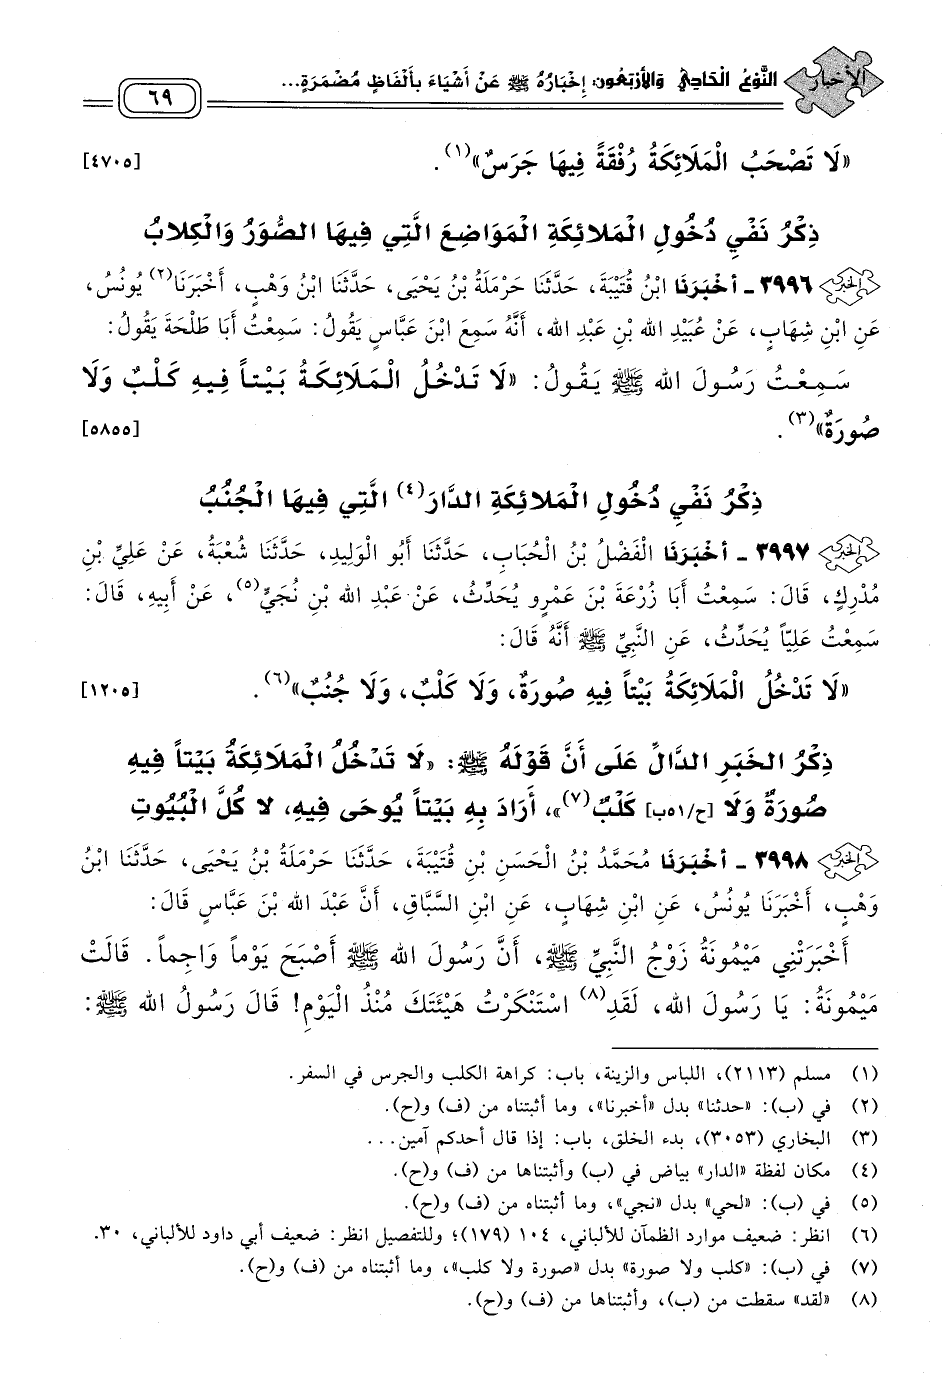 الأخبار النَّوْعُ الْحَادِي وَالأَرْبَعُون: إِخْبَارُهُ ﷺ عَنْ أَشْيَاءَ بِأَلْفَاظٍ مُضْمَرَةٍ...
٦٩
«لَا تَصْحَبُ الْمَلَائِكَةُ رُفْقَةً فِيهَا جَرَسٌ»(١). [٤٧٠٥]
ذِكْرُ نَفْيِ دُخُولِ الْمَلائِكَةِ الْمَوَاضِعَ الَّتِي فِيهَا الصُّوَرُ وَالْكِلابُ
٣٩٩٦ - أَخْبَرَنَا ابْنُ قُتَيْبَةَ، حَدَّثَنَا حَرْمَلَةُ بْنُ يَحْيَى، حَدَّثَنَا ابْنُ وَهْبٍ، أَخْبَرَنَا(٢) يُونُسُ،
عَنِ ابْنِ شِهَابٍ، عَنْ عُبَيْدِ الله بْنِ عَبْدِ الله، أَنَّهُ سَمِعَ ابْنَ عَبَّاسٍ يَقُولُ: سَمِعْتُ أَبَا طَلْحَةَ يَقُولُ:
سَمِعْتُ رَسُولَ الله ﷺ يَقُولُ: «لَا تَدْخُلُ الْمَلَائِكَةُ بَيْتاً فِيهِ كَلْبٌ وَلَا
صُورَةٌ»(٣). [٥٨٥٥]
ذِكْرُ نَفْيِ دُخُولِ الْمَلائِكَةِ الدَّارَ(٤) الَّتِي فِيهَا الْجُنُبُ
٣٩٩٧ - أَخْبَرَنَا الْفَضْلُ بْنُ الْحُبَابِ، حَدَّثَنَا أَبُو الْوَلِيدِ، حَدَّثَنَا شُعْبَةُ، عَنْ عَلِيِّ بْنِ
مُدْرِكٍ، قَالَ: سَمِعْتُ أَبَا زُرْعَةَ بْنَ عَمْرٍو يُحَدِّثُ، عَنْ عَبْدِ الله بْنِ نُجَيٍّ(٥)، عَنْ أَبِيهِ، قَالَ:
سَمِعْتُ عَلِيّاً يُحَدِّثُ، عَنِ النَّبِيِّ ﷺ أَنَّهُ قَالَ:
«لَا تَدْخُلُ الْمَلَائِكَةُ بَيْتاً فِيهِ صُورَةٌ، وَلَا كَلْبٌ، وَلَا جُنُبٌ»(٦). [١٢٠٥]
ذِكْرُ الخَبَرِ الدَّالِّ عَلَى أَنَّ قَوْلَهُ ﷺ: «لَا تَدْخُلُ الْمَلَائِكَةُ بَيْتاً فِيهِ
صُورَةٌ وَلَا [ح/٥١ب] كَلْبٌ(٧)»، أَرَادَ بِهِ بَيْتاً يُوحَى فِيهِ، لا كُلَّ الْبُيُوتِ
٣٩٩٨ - أَخْبَرَنَا مُحَمَّدُ بْنُ الْحَسَنِ بْنِ قُتَيْبَةَ، حَدَّثَنَا حَرْمَلَةُ بْنُ يَحْيَى، حَدَّثَنَا ابْنُ
وَهْبٍ، أَخْبَرَنَا يُونُسُ، عَنِ ابْنِ شِهَابٍ، عَنِ ابْنِ السَّبَّاقِ، أَنَّ عَبْدَ الله بْنَ عَبَّاسٍ قَالَ:
أَخْبَرَتْنِي مَيْمُونَةُ زَوْجُ النَّبِيِّ ﷺ، أَنَّ رَسُولَ الله ﷺ أَصْبَحَ يَوْماً وَاجِماً. قَالَتْ
مَيْمُونَةُ: يَا رَسُولَ الله، لَقَدِ(٨) اسْتَنْكَرْتُ هَيْئَتَكَ مُنْذُ الْيَوْمِ! قَالَ رَسُولُ الله ﷺ:
(١) مسلم (٢١١٣)، اللباس والزينة، باب: كراهة الكلب والجرس في السفر.
(٢) في (ب): «حدثنا» بدل «أخبرنا»، وما أثبتناه من (ف) و(ح).
(٣) البخاري (٣٠٥٣)، بدء الخلق، باب: إذا قال أحدكم آمين...
(٤) مكان لفظة «الدار» بياض في (ب) وأثبتناها من (ف) و(ح).
(٥) في (ب): «لحي» بدل «نجي»، وما أثبتناه من (ف) و(ح).
(٦) انظر: ضعيف موارد الظمآن للألباني، ١٠٤ (١٧٩)؛ وللتفصيل انظر: ضعيف أبي داود للألباني، ٣٠.
(٧) في (ب): «كلب ولا صورة» بدل «صورة ولا كلب»، وما أثبتناه من (ف) و(ح).
(٨) «لقد» سقطت من (ب)، وأثبتناها من (ف) و(ح).